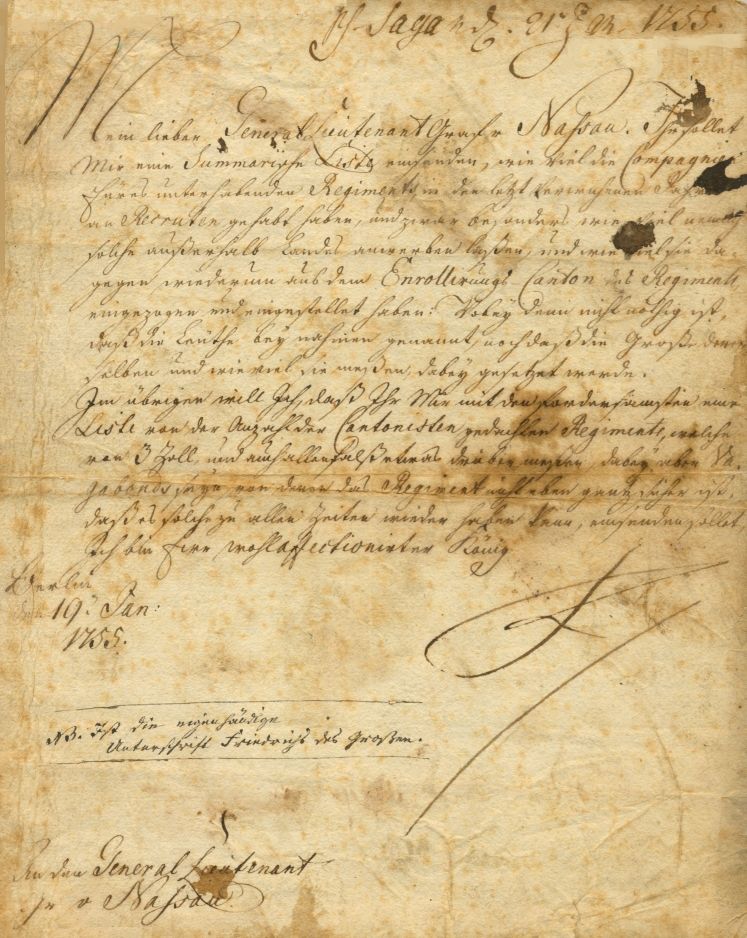 Sagan d. 21. Jan. 1755.
Mein lieber General Lieutenant Graf v Nassau. Ihr sollet
Mir eine Summarische Liste einsenden, wie viel die Compagnien
Eures unterhabenden Regiments in den letzt verwichenen
an Recruten gehabt haben, und zwar besonders wie viel
solche außerhalb Landes anwerben laßen, und wie viel sie da-
gegen wiederum aus dem Enrollirungs Canton des Regiments
eingezogen und eingestellet haben: Wobey denn nicht nöthig ist,
daß die Leuthe bey nahmen genannt, noch daß die Größe
selben und wie viel sie meßen, dabey gesetzet werde.
Im übrigen will Ich, daß Ihr Mir mit dem fordersamsten eine
Liste von der Anzahl der Cantonisten gedachten Regiments, welche
von 3 Zoll, und auch allenfalß etwas drüber meßen, dabey aber Va-
gabonds seyn, von denen das Regiment nicht eben gantz sicher ist,
daß es solche zu allen Zeiten wieder haben kann, einsenden sollet
Ich bin Euer wohlaffectionirter König
Berlin
den 19. Jan:
1755.
NB. Ist die eigenhändige
Unterschrift Friedrichs des Großen.
An den General Lieutenant
v Nassau